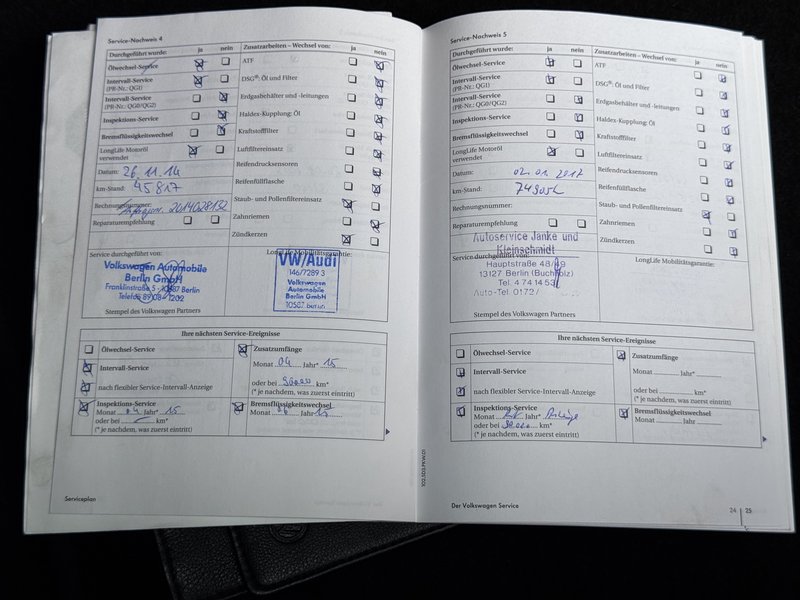 Service-Nachweis 4
Durchgeführt wurde: ja nein
Ölwechsel-Service
Intervall-Service
(PR-Nr.: QG1)
Intervall-Service
(PR-Nr.: QG0/QG2)
Inspektions-Service
Bremsflüssigkeitswechsel
LongLife Motoröl
verwendet
Datum: 26.11.14
km-Stand: 45817
Rechnungsnummer:
2014028132
Reparaturempfehlung
Zusatzarbeiten – Wechsel von: ja nein
ATF
DSG®: Öl und Filter
Erdgasbehälter und -leitungen
Haldex-Kupplung: Öl
Kraftstofffilter
Luftfiltereinsatz
Reifendrucksensoren
Reifenfüllflasche
Staub- und Pollenfiltereinsatz
Zahnriemen
Zündkerzen
Service durchgeführt von:
Volkswagen Automobile
Berlin GmbH
Franklinstraße 5 · 10587 Berlin
LongLife Mobilitätsgarantie:
VW/Audi
146/7289 3
Volkswagen
Automobile
Berlin GmbH
10587 Berlin
Stempel des Volkswagen Partners
Ihre nächsten Service-Ereignisse
Ölwechsel-Service
Intervall-Service
nach flexibler Service-Intervall-Anzeige
Inspektions-Service
Monat 04 Jahr* 15
oder bei km*
(* je nachdem, was zuerst eintritt)
Zusatzumfänge
Monat 04 Jahr* 15
oder bei km*
(* je nachdem, was zuerst eintritt)
Bremsflüssigkeitswechsel
Monat 06 Jahr 15
Serviceplan
Service-Nachweis 5
Durchgeführt wurde: ja nein
Ölwechsel-Service
Intervall-Service
(PR-Nr.: QG1)
Intervall-Service
(PR-Nr.: QG0/QG2)
Inspektions-Service
Bremsflüssigkeitswechsel
LongLife Motoröl
verwendet
Datum: 02.01.2017
km-Stand:
Rechnungsnummer:
Reparaturempfehlung
Zusatzarbeiten – Wechsel von: ja nein
ATF
DSG®: Öl und Filter
Erdgasbehälter und -leitungen
Haldex-Kupplung: Öl
Kraftstofffilter
Luftfiltereinsatz
Reifendrucksensoren
Reifenfüllflasche
Staub- und Pollenfiltereinsatz
Zahnriemen
Zündkerzen
Service durchgeführt von:
Autoservice Janke und
Kleinschmidt
Hauptstraße 48/49
13127 Berlin (Buchholz)
Tel. 4 74 14 53
Auto-Tel. 0172/
LongLife Mobilitätsgarantie:
Stempel des Volkswagen Partners
Ihre nächsten Service-Ereignisse
Ölwechsel-Service
Intervall-Service
nach flexibler Service-Intervall-Anzeige
Inspektions-Service
Monat Jahr* Anzeige
oder bei km*
(* je nachdem, was zuerst eintritt)
Zusatzumfänge
Monat Jahr*
oder bei km*
(* je nachdem, was zuerst eintritt)
Bremsflüssigkeitswechsel
Monat Jahr
Der Volkswagen Service
24 25